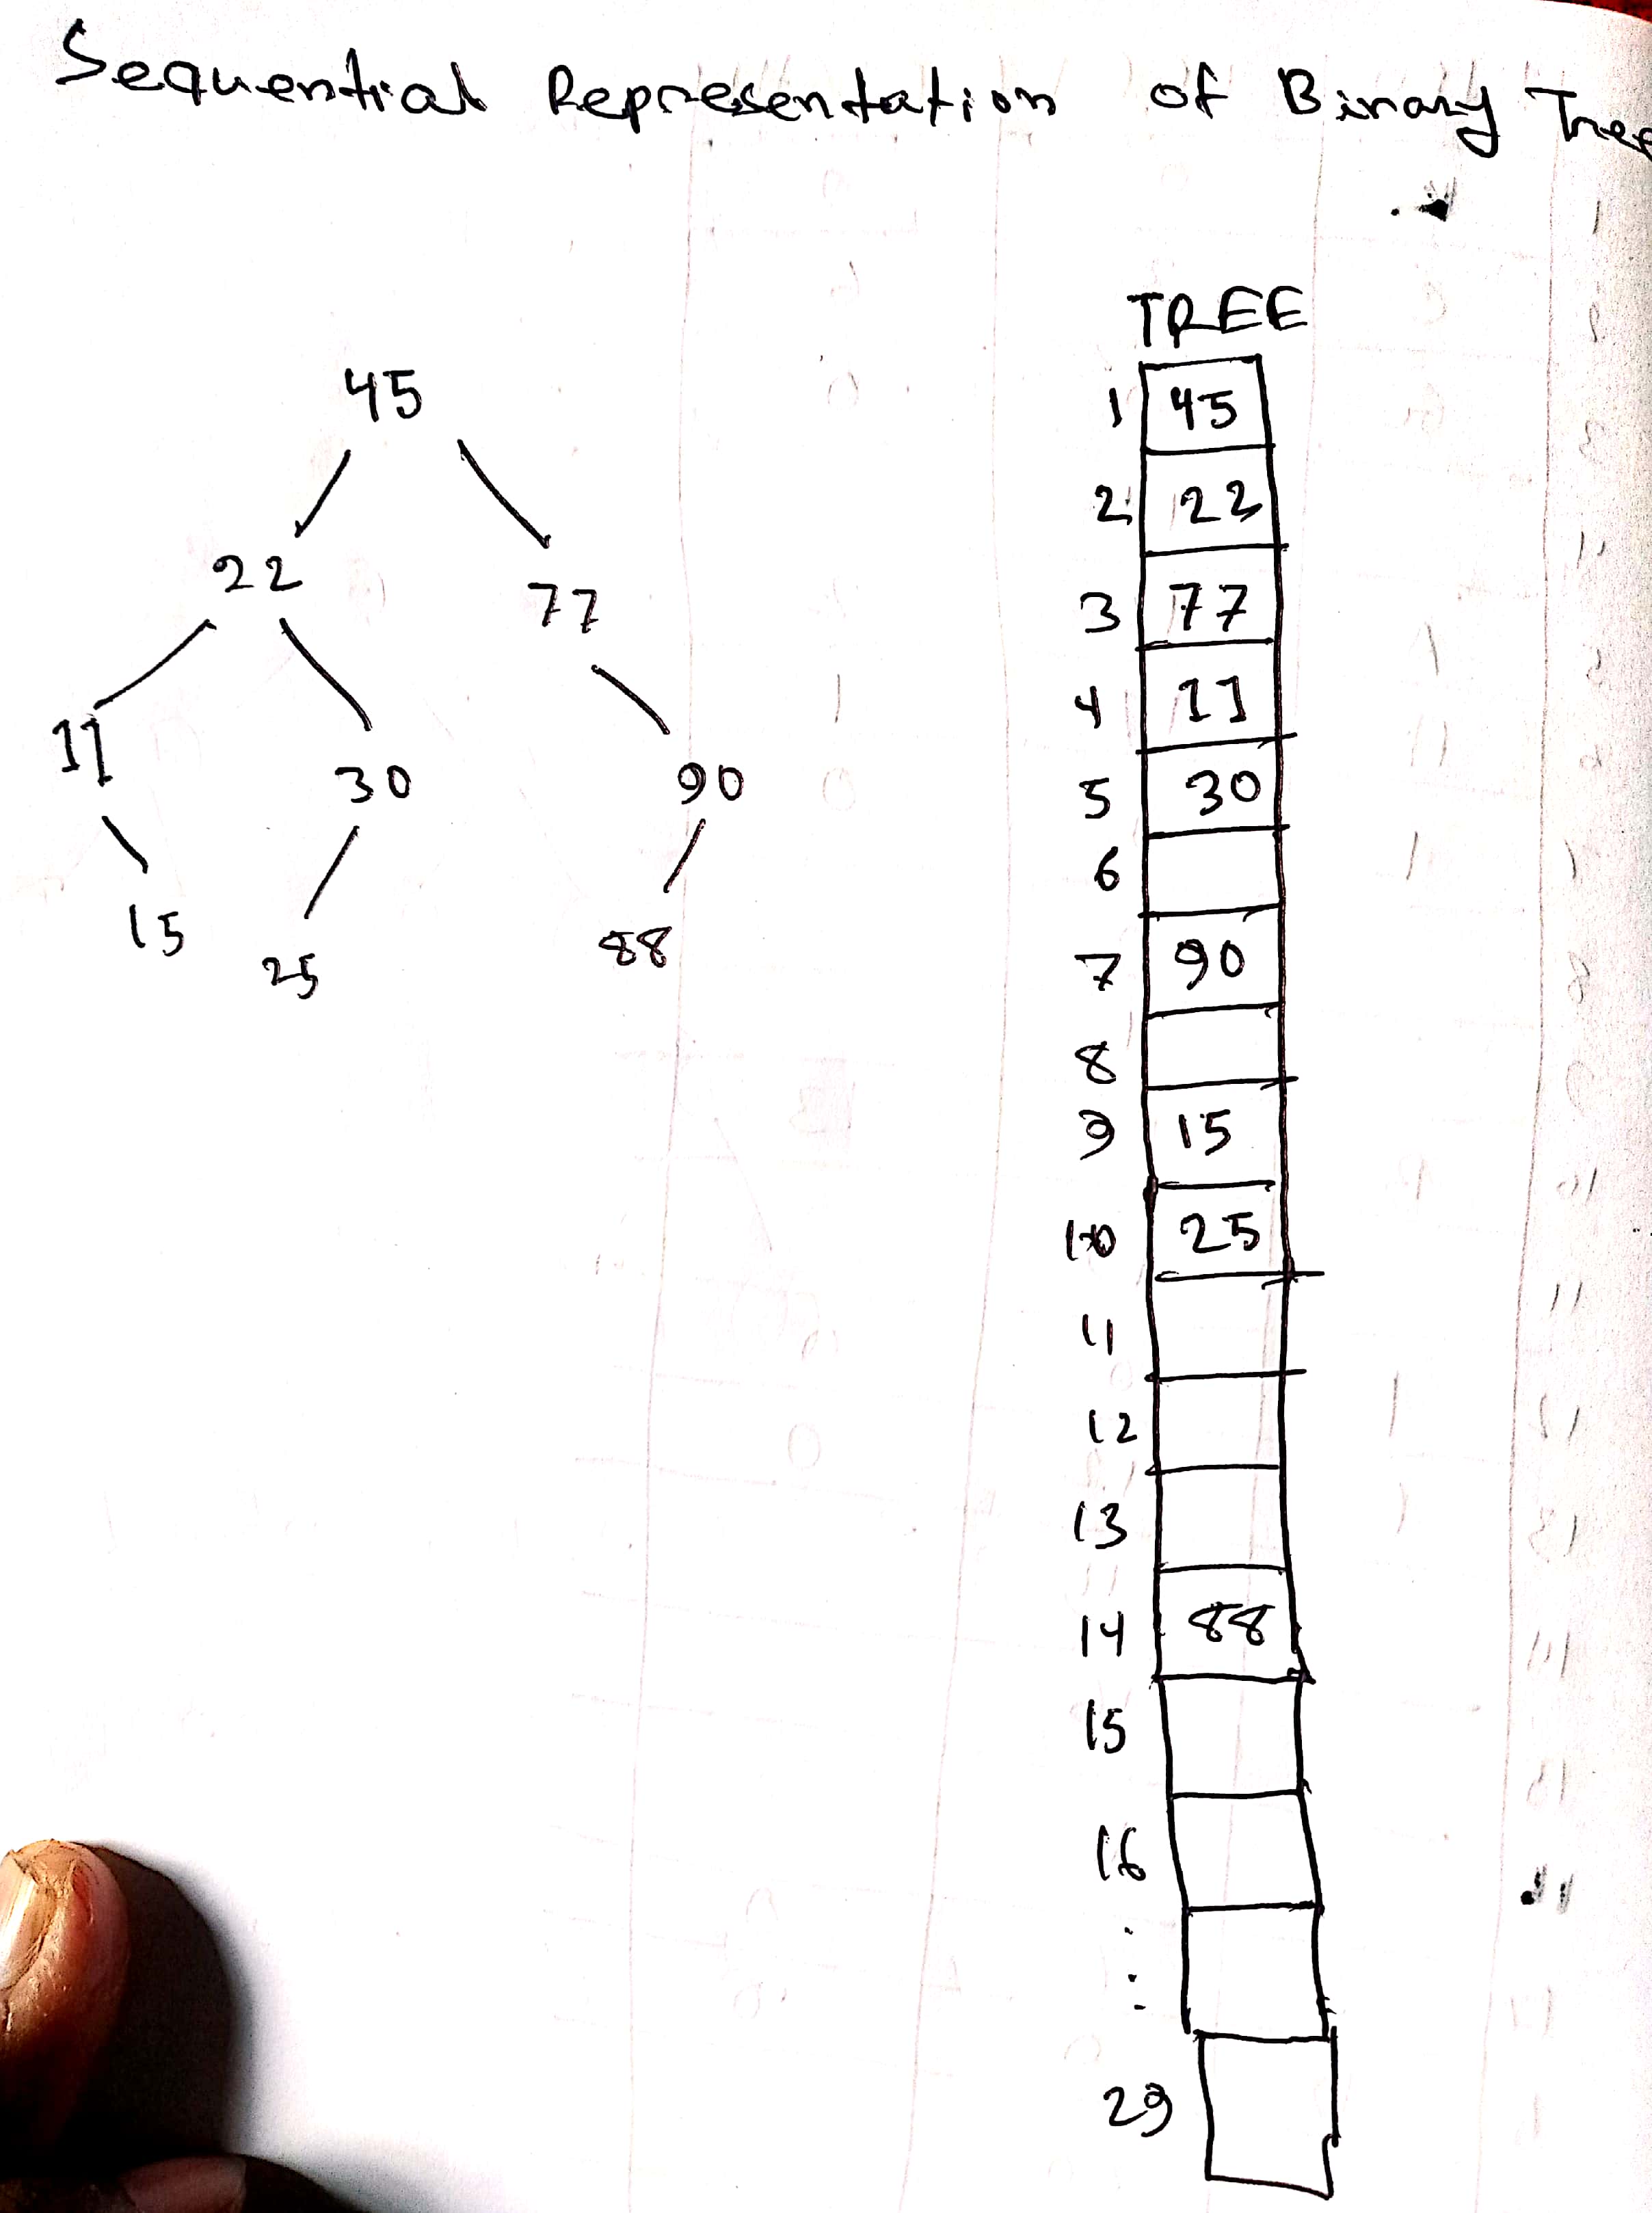 Sequential Representation of Binary Tree
45
22 77
11 30 90
15 25 88
TREE
1 45
2 22
3 77
4 11
5 30
6
7 90
8
9 15
10 25
11
12
13
14 88
15
16
29